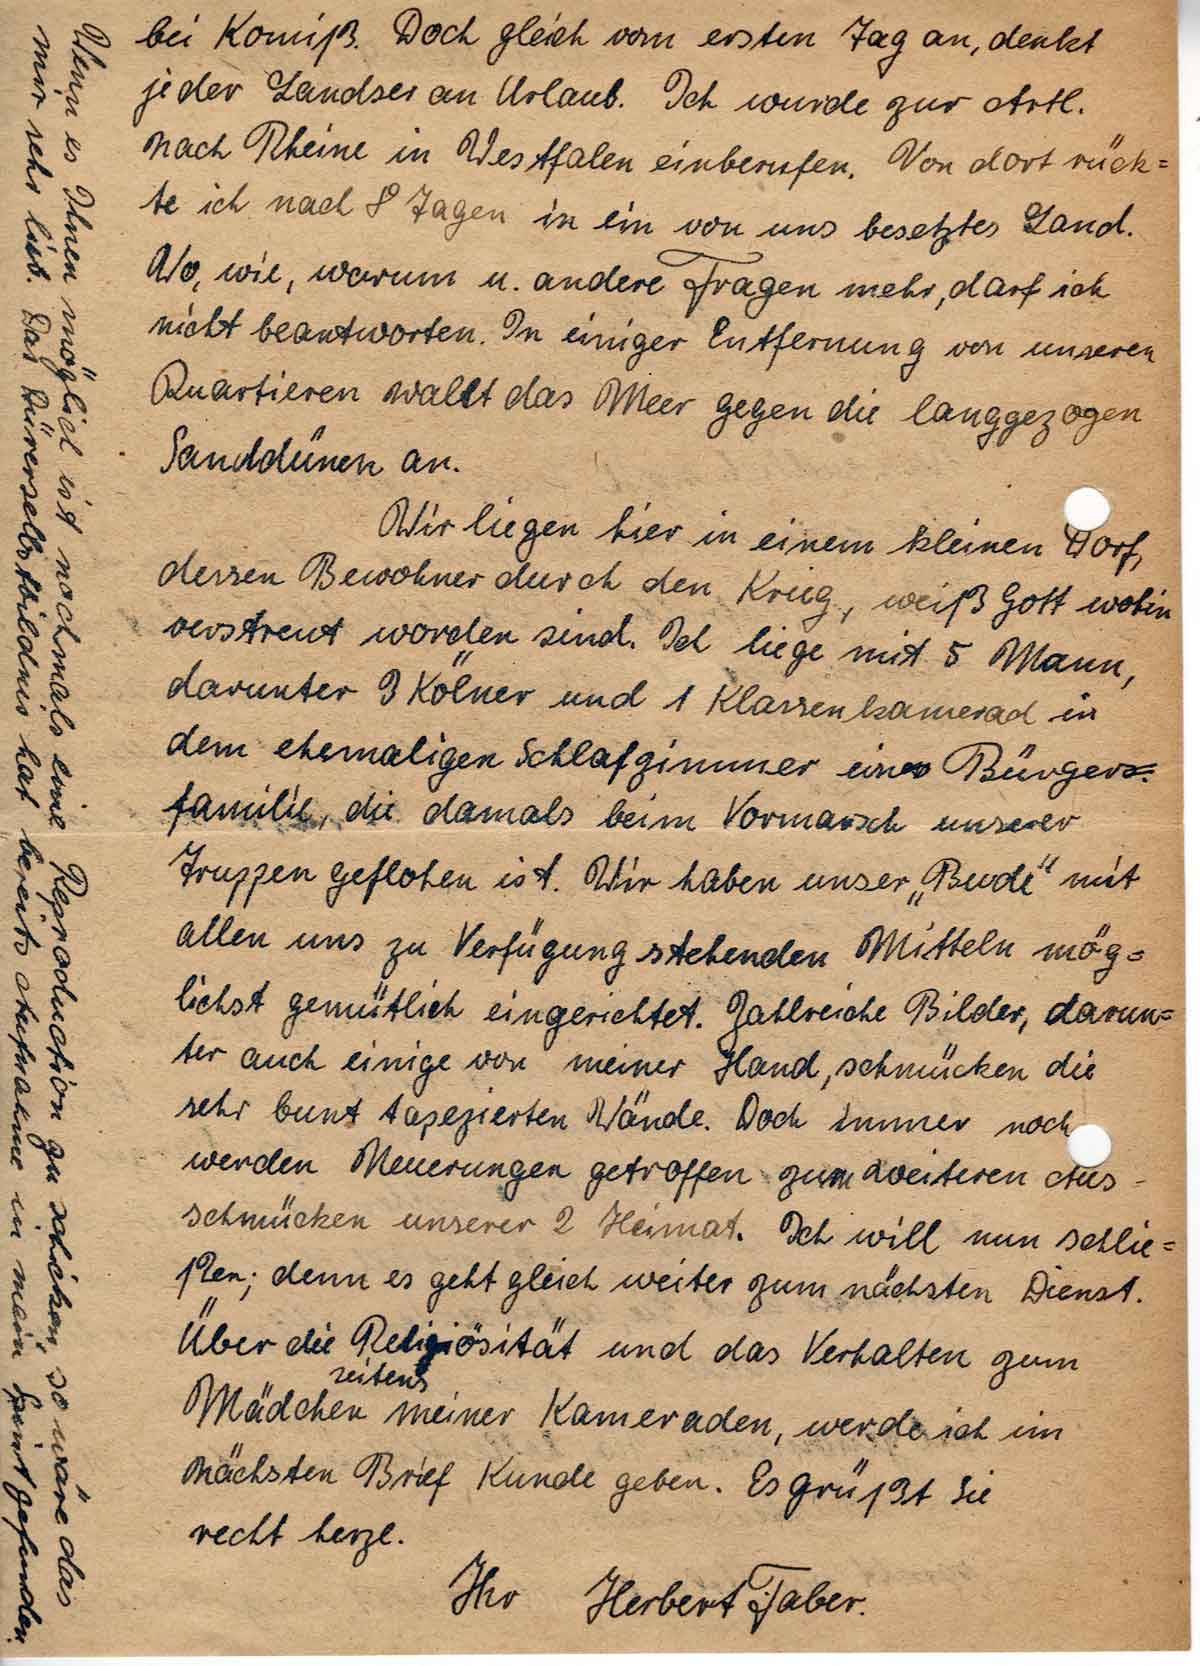 bei Komiß. Doch gleich vom ersten Tag an, denkt
jeder Landser an Urlaub. Ich wurde zur Artl.
nach Rheine in Westfalen einberufen. Von dort rück=
te ich nach 8 Tagen in ein von uns besetztes Land.
Wo, wie, warum u. andere Fragen mehr, darf ich
nicht beantworten. In einiger Entfernung von unseren
Quartieren wallt das Meer gegen die langgezogen
Sanddünen an.
Wir liegen hier in einem kleinen Dorf,
dessen Bewohner durch den Krieg, weiß Gott wohin
verstreut worden sind. Ich liege mit 5 Mann,
darunter 3 Kölner und 1 Klassenkamerad in
dem ehemaligen Schlafzimmer einer Bürger=
familie, die damals beim Vormarsch unserer
Truppen geflohen ist. Wir haben unser „Bude" mit
allen uns zu Verfügung stehenden Mitteln mög=
lichst gemütlich eingerichtet. Zahlreiche Bilder, darun=
ter auch einige von meiner Hand, schmücken die
sehr bunt tapezierten Wände. Doch immer noch
werden Neuerungen getroffen zum weiteren Aus-
schmücken unserer 2 Heimat. Ich will nun schlie=
ßen; denn es geht gleich weiter zum nächsten Dienst.
Über die Religiösität und das Verhalten zum
Mädchen seitens meiner Kameraden, werde ich im
nächsten Brief Kunde geben. Es grüßt Sie
recht herzl.
Ihr Herbert Faber.
Wenn es Ihnen möglich ist nochmals eine Reproduction zu schicken, so wäre das
mir sehr lieb. Das Dürerselbstbildnis hat bereits Aufnahme in mein Spint gefunden.